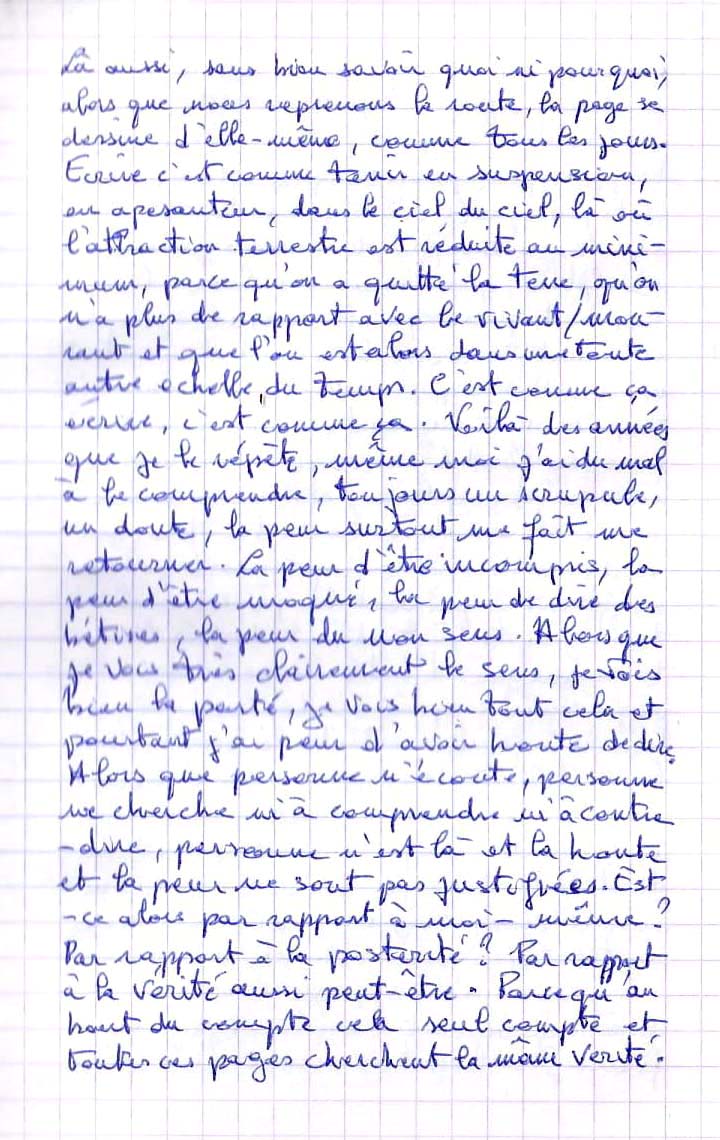 Là aussi, sans bien savoir quoi ni pourquoi,
alors que nous reprenons la route, la page se
dessine d'elle-même, comme tous les jours.
Ecrire c'est comme tenir en suspension,
en apesanteur, dans le ciel du ciel, là où
l'attraction terrestre est réduite au mini-
mum, parce qu'on a quitté la terre, qu'on
n'a plus de rapport avec le vivant/mou-
rant et que l'on est alors dans une toute
autre échelle du temps. C'est comme ça
écrire, c'est comme ça. Voilà des années
que je le répète, même moi j'ai du mal
à le comprendre, toujours un scrupule,
un doute, la peur surtout me fait me
retourner. La peur d'être incompris, la
peur d'être moqué, la peur de dire des
bêtises, la peur du non sens. Alors que
je vois très clairement le sens, je vois
bien la porté, je vois bien tout cela et
pourtant j'ai peur d'avoir honte de dire.
Alors que personne n'écoute, personne
ne cherche ni à comprendre ni à contre
-dire, personne n'est là et la honte
et la peur ne sont pas justifiées. Est
-ce alors par rapport à moi-même?
Par rapport à la postérité? Par rapport
à la vérité aussi peut-être. Parce qu'au
bout du compte cela seul compte et
toutes ces pages cherchent la même vérité.